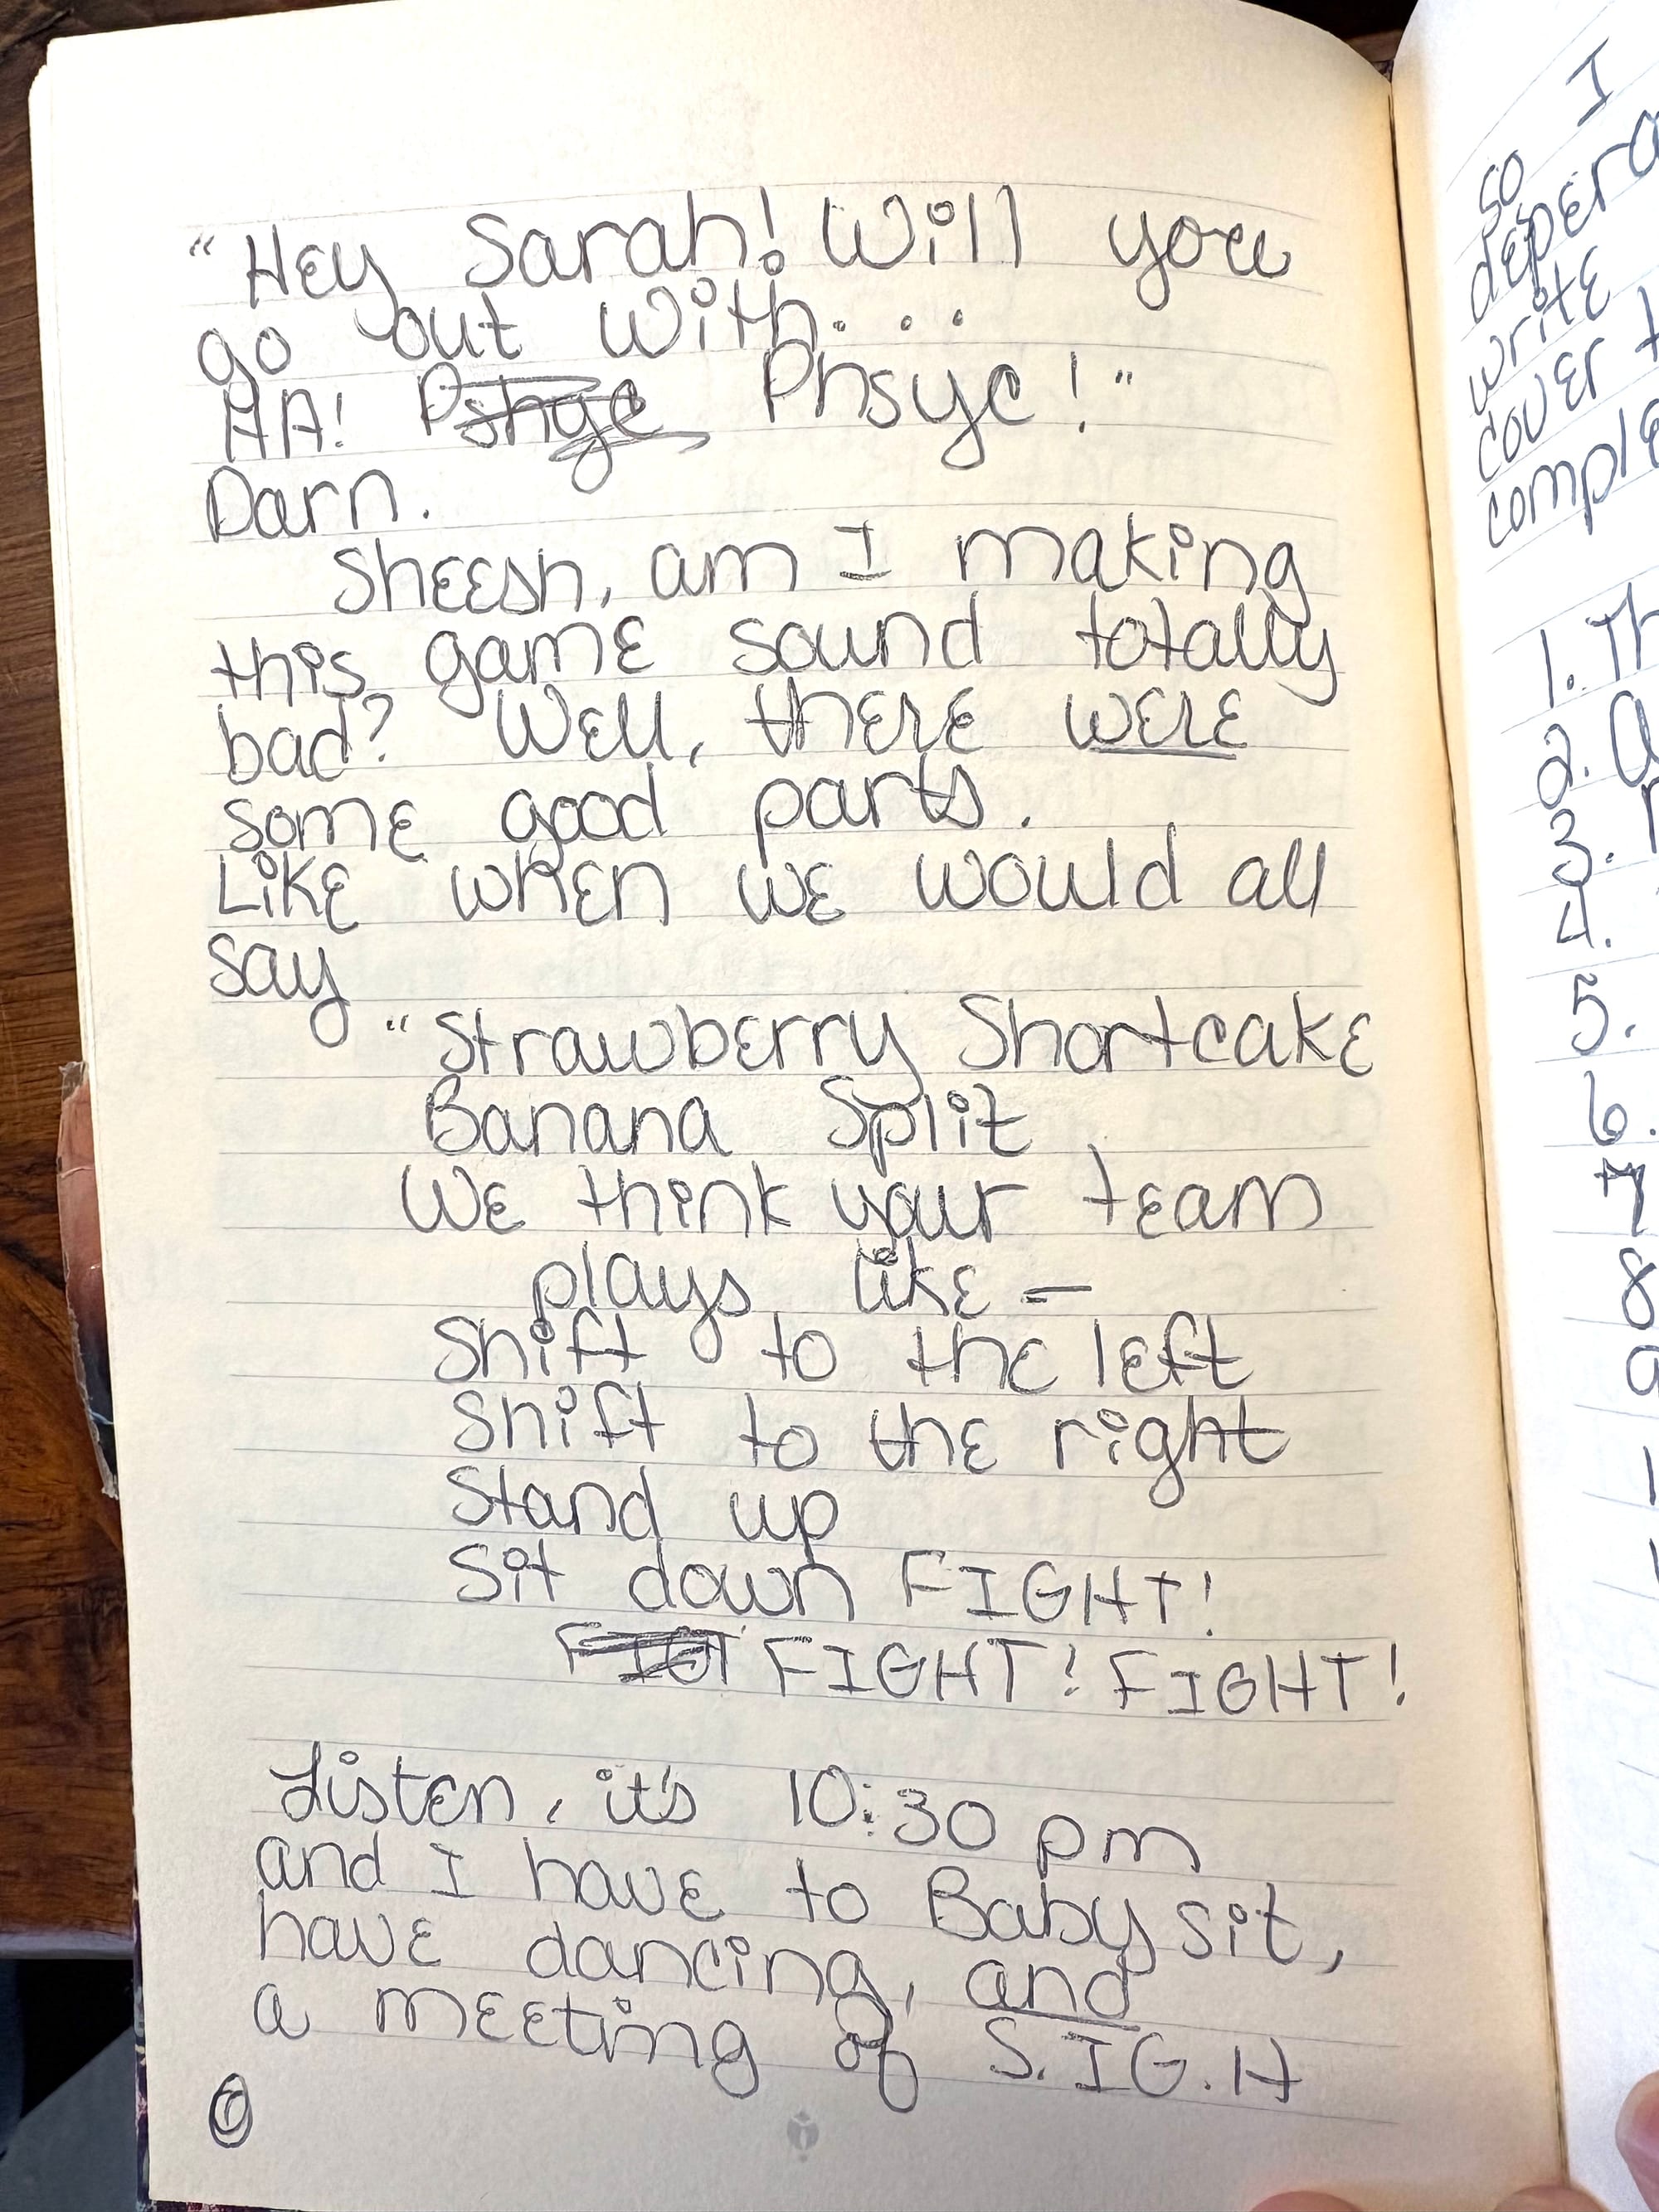 "Hey Sarah! Will you
go out with...
HA! Pshyc Phsyc!"
Darn.
Sheesh, am I making
this game sound totally
bad? Well, there were
some good parts.
Like when we would all
say
"Strawberry Shortcake
Banana Split
We think your team
plays like –
Shift to the left
Shift to the right
Stand up
Sit down FIGHT!
FIGT FIGHT! FIGHT!
Listen, it's 10:30 pm
and I have to Baby sit,
have dancing, and
a meeting of S.IG.H
6
I
so
depend
write
cover
comple
1. Th
2.
3.
4.
5.
6.
7
8
9